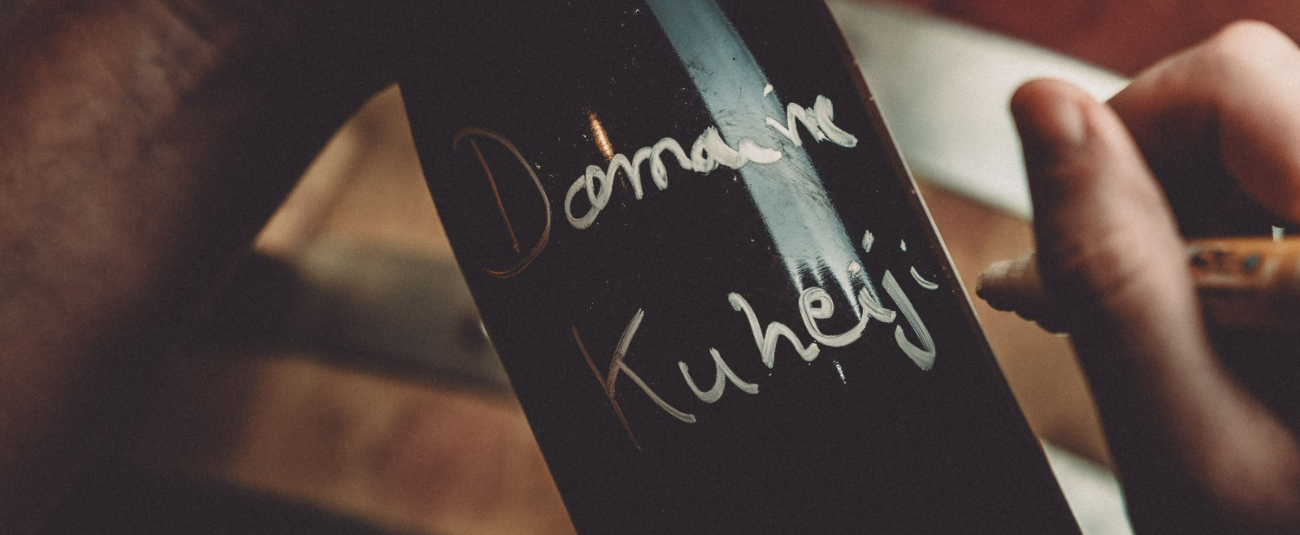 Domaine
Kuheiji